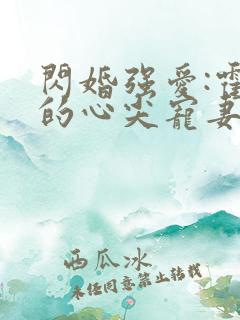 閃婚強愛:霍
的心尖寵妻
西瓜冰
未經同意禁止轉載